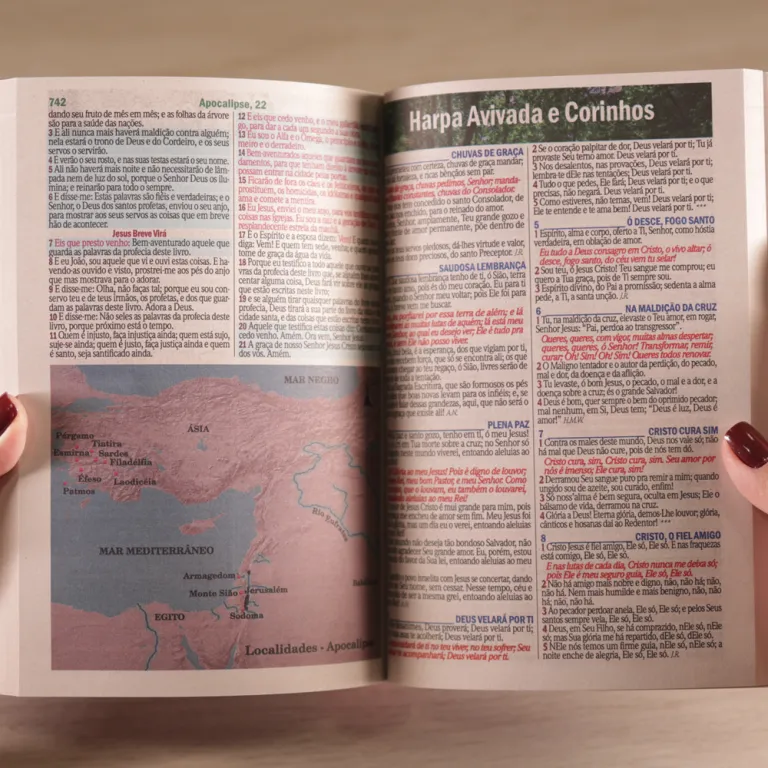 742
Apocalipse, 22
dando seu fruto de mês em mês; e as folhas da árvore
são para a saúde das nações.
3 E ali nunca mais haverá maldição contra alguém;
nela estará o trono de Deus e do Cordeiro, e os seus
servos o servirão.
4 E verão o seu rosto, e nas suas testas estará o seu nome.
5 Ali não haverá mais noite e não necessitarão de lâm-
pada nem de luz do sol, porque o Senhor Deus os ilu-
mina; e reinarão para todo o sempre.
6 E disse-me: Estas palavras são fiéis e verdadeiras; e o
Senhor, o Deus dos santos profetas, enviou o seu anjo,
para mostrar aos seus servos as coisas que em breve
hão de acontecer.
Jesus Breve Virá
7 Eis que presto venho: Bem-aventurado aquele que
guarda as palavras da profecia deste livro.
8 E eu João, sou aquele que vi e ouvi estas coisas. E ha-
vendo-as ouvido e visto, prostrei-me aos pés do anjo
que mas mostrava para o adorar.
9 E disse-me: Olha, não faças tal; porque eu sou con-
servo teu e de teus irmãos, os profetas, e dos que guar-
dam as palavras deste livro. Adora a Deus.
10 E disse-me: Não seles as palavras da profecia deste
livro, porque próximo está o tempo.
11 Quem é injusto, faça injustiça ainda; quem está sujo,
suje-se ainda; quem é justo, faça justiça ainda e quem
é santo, seja santificado ainda.
12 E eis que cedo venho, e o meu
go, para dar a cada um segundo a sua
13 Eu sou o Alfa e o Ômega, o princípio e
meiro e o derradeiro.
14 Bem-aventurados aqueles que guardam
damentos, para que tenham
possam entrar na cidade pelas
15 Ficarão de fora os cães e os feiticeiros,
prostituem, os homicidas, os idólatras e
ama e comete a mentira.
16 Eu, Jesus, enviei o meu anjo, para vos
coisas nas igrejas. Eu sou a raiz e a geração de
resplandecente estrela da manhã.
17 E o Espírito e a esposa dizem: Vem! E quem
diga: Vem! E quem tem sede, venha; e quem
tome de graça da água da vida.
18 Porque eu testifico a todo aquele que ouvir as
vras da profecia deste livro que, se alguém
centar alguma coisa, Deus fará vir sobre ele
que estão escritas neste livro;
19 e se alguém tirar quaisquer palavras do livro
profecia, Deus tirará a sua parte da árvore da vida,
cidade santa, e das coisas que estão escritas
20 Aquele que testifica estas coisas diz: Cer
cedo venho. Amém. Ora vem, Senhor Jesus.
21 A graça de nosso Senhor Jesus Cristo
dos vós. Amém.
MAR NEGRO
ÁSIA
Pérgamo
Tiatira
Esmirna Sardes
Filadélfia
Éfeso
Laodicéia
Patmos
Rio Eufrates
MAR MEDITERRÂNEO
Armagedom
Monte Sião
Jerusalém
EGITO
Sodoma
Localidades - Apocalip
Harpa Avivada e Corinhos
CHUVAS DE GRAÇA
com certeza, chuvas de graça mandar;
e ricas bênçãos sem par.
chuvas pedimos, Senhor; manda-
constantes, chuvas do Consolador.
concedido o santo Consolador, de
para o reinado do amor.
Senhor, amplamente, Teu grande gozo e
amor permanente, põe dentro de
servos piedosos, dá-lhes virtude e valor,
dons preciosos, do santo Preceptor. J.R.
SAUDOSA LEMBRANÇA
lembrança tenho de ti, ó Sião, terra
pois és do meu coração. Eu para ti
Senhor meu voltar; pois Ele foi para
tem me buscar.
por essa terra de além; e lá
as muitas lutas de aquém; lá está meu
ao qual eu desejo ver; Ele é tudo pra
sem Ele não posso viver.
bela, é a esperança, dos que vigiam por ti,
força, que só se encontra ali; os que
chegar ao teu regaço, ó Sião, livres serão de
e toda a tentação.
Escritura, que são formosos os pés
boas novas levam para os infiéis; e, se
dessas grandezas, aqui, que não será o
existe ali! A.N.
PLENA PAZ
e santo gozo, tenho em ti, ó meu Jesus!
em Tua morte sobre a cruz; no Senhor só
ao meu Jesus! Pois é digno de louvor;
meu bom Pastor, e meu Senhor. Como
que o louvam, eu também o louvarei,
ao meu Rei!
de Jesus Cristo é mui grande para mim, pois
me encheu de amor sem fim. Meu Jesus foi
mas um dia eu o verei, entoando aleluias
mundo não deseja tão bondoso Salvador, não
agradecer Seu grande amor. Eu, porém, estou
favor da Sua lei, entoando aleluias ao meu
povo remitta com Jesus se concertar, dando
seu lado, sem cessar. Nesse tempo, céu e
ser a mesma grei, entoando aleluias ao
DEUS VELARÁ POR TI
Deus proverá; Deus velará por ti;
te acolherá; Deus velará por ti.
de ti no teu viver, no teu sofrer; Seu
acompanhará; Deus velará por ti.
2 Se o coração palpitar de dor, Deus velará por ti; Tu já
provaste Seu terno amor. Deus velará por ti.
3 Nos desalentos, nas provações, Deus velará por ti;
lembra-te dEle nas tentações; Deus velará por ti.
4 Tudo o que pedes, Ele fará; Deus velará por ti; e o que
precisas, não negará. Deus velará por ti.
5 Como estiveres, não temas, vem! Deus velará por ti;
Ele te entende e te ama bem! Deus velará por ti. ***
5
Ó DESCE, FOGO SANTO
1 Espírito, alma e corpo, oferto a Ti, Senhor, como hóstia
verdadeira, em oblação de amor.
Eu tudo a Deus consagro em Cristo, o vivo altar; ó
desce, fogo santo, do céu vem tu selar!
2 Sou teu, ó Jesus Cristo! Teu sangue me comprou; eu
quero a Tua graça, pois de Ti sempre sou.
3 Espírito divino, do Pai a promissão; sedenta a alma
pede, a Ti, a santa unção. J.R.
6
NA MALDIÇÃO DA CRUZ
1 Tu, na maldição da cruz, elevaste o Teu amor, em rogar,
Senhor Jesus: "Pai, perdoa ao transgressor".
Queres, queres, com vigor, muitas almas despertar;
queres, queres, ó Senhor! Transformar, remir,
curar; Oh! Sim! Oh! Sim! Queres todos renovar.
2 O Maligno tentador e o autor da perdição, do pecado,
mal e dor, da doença e da aflição.
3 Tu levaste, ó bom Jesus, o pecado, o mal e a dor, e a
doença sobre a cruz; és o grande Salvador!
4 Deus é bom, quer sempre o bem do oprimido pecador;
mal nenhum, em Si, Deus tem; "Deus é luz, Deus é
amor!" H.M.W.
7
CRISTO CURA SIM
1 Contra os males deste mundo, Deus nos vale só; não
há mal que Deus não cure, pois de nós tem dó.
Cristo cura, sim, Cristo cura, sim. Seu amor por
nós é imenso; Ele cura, sim!
2 Derramou Seu sangue puro pra remir a mim; quando
ungido sou de azeite, sou curado, enfim!
3 Só noss'alma é bem segura, oculta em Jesus; Ele o
bálsamo de vida, derramou na cruz.
4 Glória a Deus! Eterna glória, demos-Lhe louvor; glória,
cânticos e hosanas dai ao Redentor! ***
8
CRISTO, O FIEL AMIGO
1 Cristo Jesus é fiel amigo, Ele só, Ele só. E nas fraquezas
está comigo, Ele só, Ele só.
E nas lutas de cada dia, Cristo nunca me deixa só;
pois Ele é meu seguro guia, Ele só, Ele só.
2 Não há amigo mais nobre e digno, não, não há; não,
não há. Nem mais humilde e mais benigno, não, não
há; não, não há.
3 Ao pecador perdoar anela, Ele só, Ele só; e pelos Seus
santos sempre vela, Ele só, Ele só.
4 Deus, em Seu Filho, se há comprazido, nEle só, nEle
só; mas Sua glória me há repartido, dEle só, dEle só.
5 NEle nós temos um firme guia, nEle só, nEle só; a
noite enche de alegria, Ele só, Ele só. J.R.